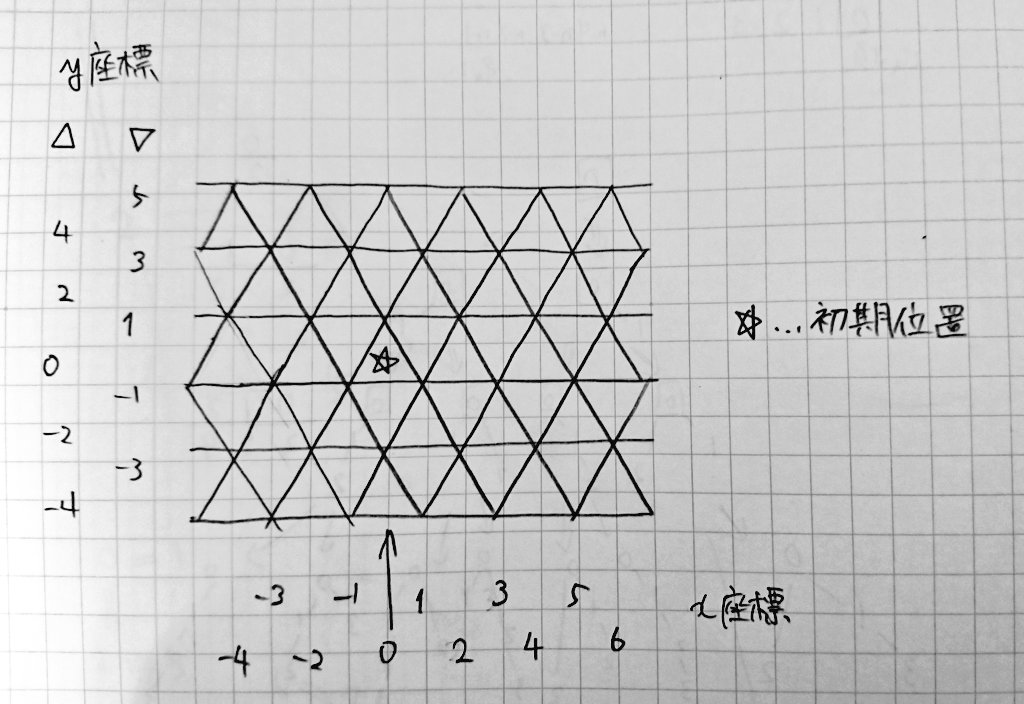 y座標
△ ▽
5
4
3
2
1
0
-1
-2
-3
-4
☆…初期位置
-3 -1 1 3 5
x座標
-4 -2 0 2 4 6